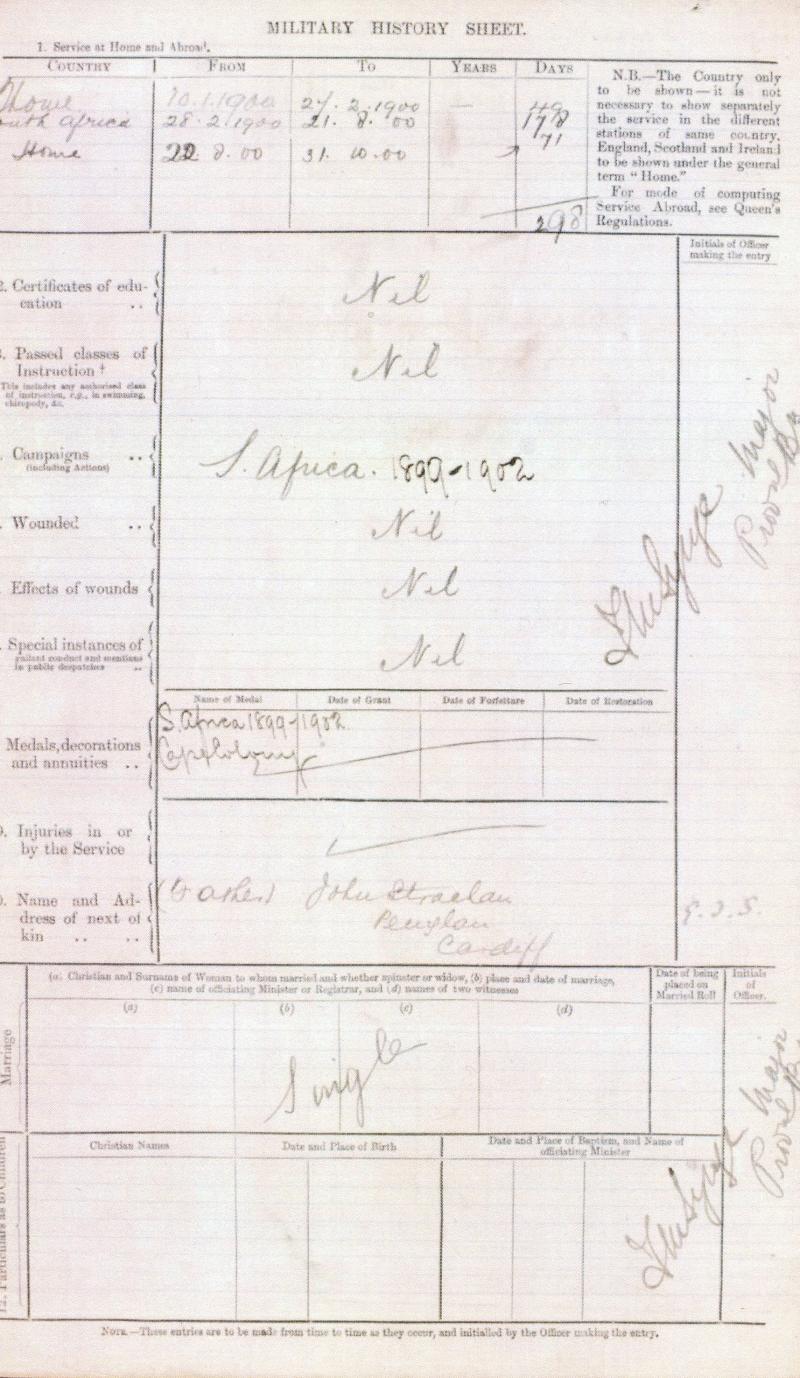 MILITARY HISTORY SHEET.
1. Service at Home and Abroad.
COUNTRY FROM TO YEARS DAYS
Home 10.1.1900 27.2.1900 — 49
South Africa 28.2.1900 21.8.00 178
Home 22 8.00 31.10.00 71
298
N.B.—The Country only
to be shown—it is not
necessary to show separately
the service in the different
stations of same country.
England, Scotland and Ireland
to be shown under the general
term "Home."
For mode of computing
Service Abroad, see Queen's
Regulations.
Initials of Officer
making the entry
2. Certificates of edu-
cation ..
Nil
Passed classes of
Instruction †
This includes any authorised class
of instruction, e.g., in swimming,
chiropody, &c.
Nil
Campaigns ..
(including Actions)
S. Africa. 1899-1902
Wounded ..
Nil
Effects of wounds
Nil
Special instances of
gallant conduct and mentions
in public despatches ..
Nil
Major
Name of Medal Date of Grant Date of Forfeiture Date of Restoration
Medals, decorations
and annuities ..
S. Africa 1899-1902
Cape Colony
9. Injuries in or
by the Service
Name and Ad-
dress of next of
kin .. ..
(Father) John Strachan
Penylan
Cardiff
Marriage
(a) Christian and Surname of Woman to whom married and whether spinster or widow, (b) place and date of marriage,
(c) name of officiating Minister or Registrar, and (d) names of two witnesses
Date of being
placed on
Married Roll
Initials
of
Officer.
(a) (b) (c) (d)
Single
Major
12. Particulars as to Children
Christian Names Date and Place of Birth Date and Place of Baptism, and Name of
officiating Minister
NOTE.—These entries are to be made from time to time as they occur, and initialled by the Officer making the entry.